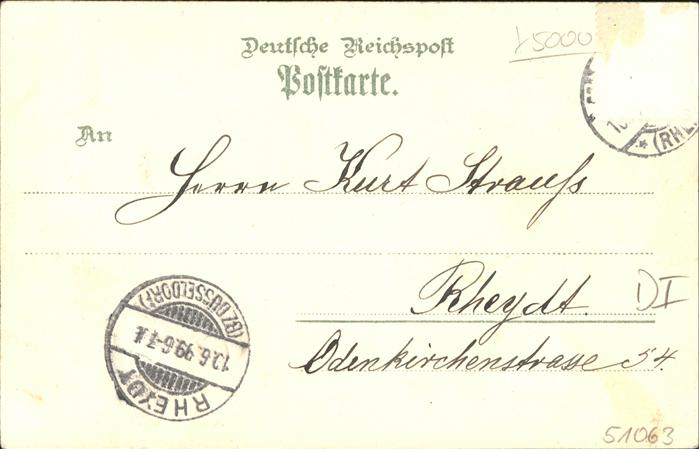 Deutsche Reichspost
Postkarte.
An
Herrn Kurt Strauss
Rheydt.
Odenkirchenstrasse 54.
DI
51063
15000
(RHE
RHEYDT
13.6.99.6-7.N.
(BZ DÜSSELDORF)